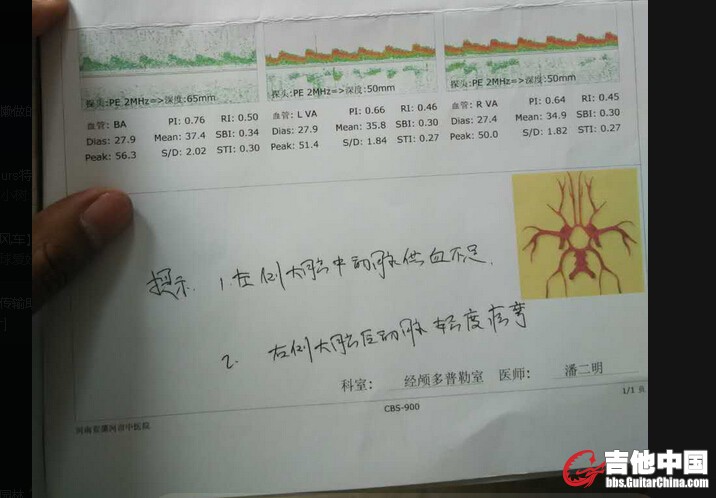 探头:PE 2MHz=>深度:65mm
探头:PE 2MHz=>深度:50mm
探头:PE 2MHz=>深度:50mm
血管: BA PI: 0.76 RI: 0.50
Dias: 27.9 Mean: 37.4 SBI: 0.34
Peak: 56.3 S/D: 2.02 STI: 0.30
血管: L VA PI: 0.66 RI: 0.46
Dias: 27.9 Mean: 35.8 SBI: 0.30
Peak: 51.4 S/D: 1.84 STI: 0.27
血管: R VA PI: 0.64 RI: 0.45
Dias: 27.4 Mean: 34.9 SBI: 0.30
Peak: 50.0 S/D: 1.82 STI: 0.27
提示. 1.左侧大脑中动脉供血不足.
2. 左侧大脑后动脉轻度痉挛
科室: 经颅多普勒室 医师: 潘二明
1/1 页
CBS-900
河南省漯河市中医院
吉他中国
bbs.GuitarChina.com